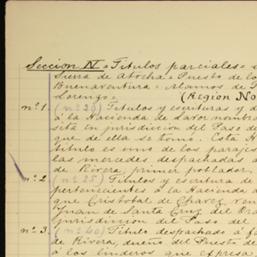 Seccion IV = Titulos parciales =
Sierra de Atocha = Puesto de lo
Buenaventura = Alamos de
Lorenzo = (Region No
nº 1. (nº 29) Titulos y escrituras y d
á la Hacienda de
sita en jurisdiccion del Paso de
que de ella se tomó. Esta H
titulo es uno de los parajes
las mercedes despachadas á
de Rivera, primer poblador.
nº 2. (nº 25) Titulos y escritura de
pertenecientes á la Hacienda
que Cristobal de Chavez ven
Juan de Santa Cruz del
jurisdiccion del Paso del
nº 3. (nº 40) Titulo despachado á f
de Rivera, dueño del Puesto de
á los linderos que expresa